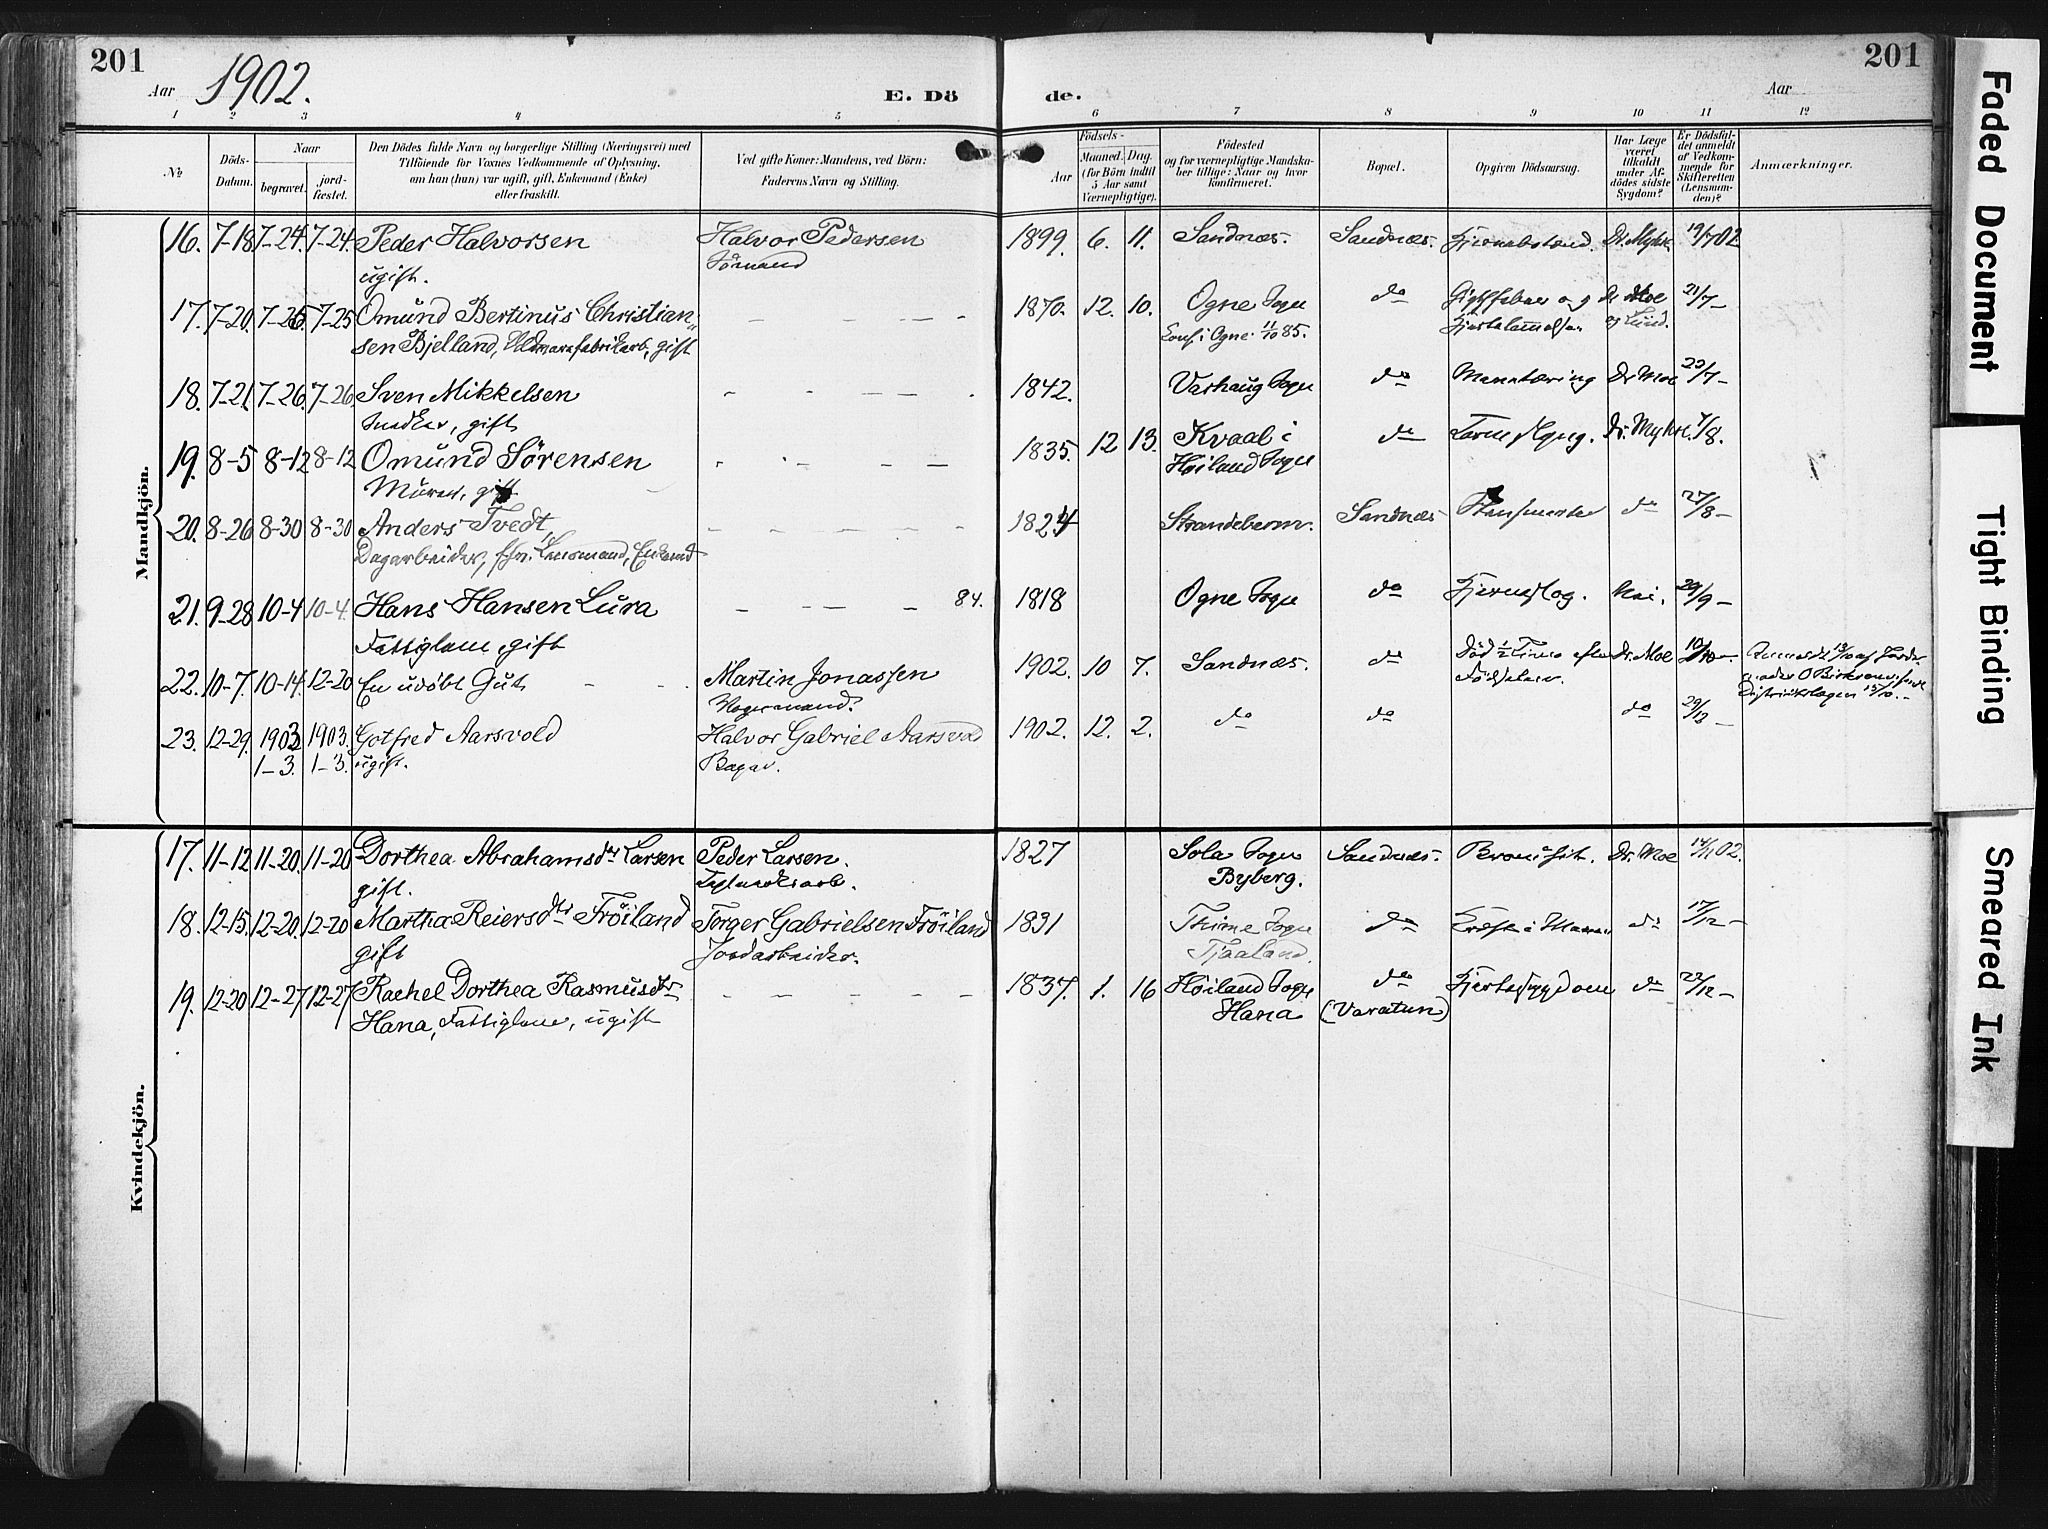 201
Aar 1902.
E. Döde.
Aar
201
1 2 3 4 5 6 7 8 9 10 11 12
№
Döds-Datum.
Naar
begravet.
jordfæstet.
Den Dödes fulde Navn og borgerlige Stilling (Næringsvei) med
Tilföiende for Voxnes Vedkommende af Oplysning,
om han (hun) var ugift, gift, Enkemand (Enke)
eller fraskilt.
Ved gifte Koner: Mandens, ved Börn:
Faderens Navn og Stilling.
Födsels-
Aar
Maaned. Dag.
(for Börn indtil
5 Aar samt
Værnepligtige).
Födested
og for værnepligtige Mandska-
ber tillige: Naar og hvor
konfirmeret.
Bopæl.
Opgiven Dödsaarsag.
Har Læge
været
tilkaldt
under Af-
dödes sidste
Sygdom?
Er Dödsfal-
det anmeldt
af Vedkom-
mende for
Skifteretten
(Lensman-
den)?
Anmærkninger.
Mandkjön.
16. 7-18 7-24. 7-24. Peder Halvorsen Halvor Pedersen 1899. 6. 11. Sandnæs. Sandnæs. Dr. Myhre 19/7 02
ugift. Sömand
17. 7-20. 7-25 7-25 Omund Bertinus Christian- — — — — 1870. 12. 10. Ogne Sogn do Gigtfeber og Dr Moe 21/7 —
sen Bjelland, Uldvarefabrikarb, gift Konf. i Ogne 11/10 85. Hjertelammelse og Lund.
18. 7-21. 7-26. 7-26. Sven Mikkelsen — — — — 1842. Varhaug Sogn do Mavetæring Dr Moe 23/7 —
Snedker, gift
19. 8-5 8-12 8-12 Omund Sörensen — — — — 1835. 12 13. Kvaal i do Dr. Myhre. 7/8.
Murer, gift Höiland Sogn
20. 8-26 8-30 8-30 Anders Tvedt, — — — — 1824 Strandeberm. Sandnæs do 27/8 —
Dagarbeider, fhv. Lensmand, Enkemd
21. 9-28 10-4 10-4. Hans Hansen Lura — — — — 84. 1818 Ogne Sogn do Hjerneslag. Nei. 29/9 —
Fattiglem, gift
22. 10-7. 10-14. 12-20 En udöbt Gut — — Martin Jonassen 1902. 10 7. Sandnæs. do Död 1/2 Time efter Dr. Moe 10/10 —
Vognmand. Födselen. Distriktslægen 15/10. —
23. 12-29. 1903 1903. Gotfred Aarsvold Halvor Gabriel Aarsvold 1902. 12. 2. do do do 29/12 —
1-3. 1-3. ugift. Bager.
Kvindekjön.
17. 11-12 11-20. 11-20 Dorthea Abrahamsdtr Larsen Peder Larsen. 1827 Sola Sogn Sandnæs. Dr. Moe 14/11 02.
gift. Byberg.
18. 12-15. 12-20. 12-20 Martha Reiersdtr Fröiland Torger Gabrielsen Fröiland 1831 Thime Sogn do Kræft i Maven do 17/12 —
gift Jordarbeider. Tjaaland.
19. 12-20 12-27 12-27 Rachel Dorthea Rasmusdtr — — — — — 1837. 1. 16 Höiland Sogn do Hjertesygdom do 22/12 —
Hana, Fattiglem, ugift Hana (Varatun)
Faded Document
Tight Binding
Smeared Ink